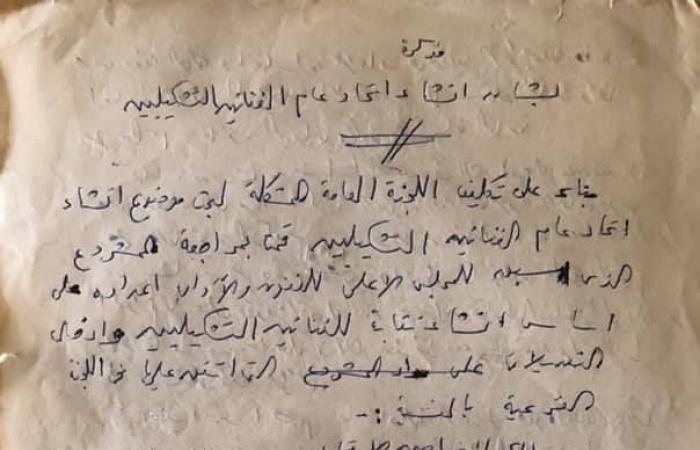 مذكرة
بشأن انشاء اتحاد عام الفنانين التشكيليين
بناء على تكليف اللجنة العامة المشكلة لبحث موضوع انشاء
اتحاد عام الفنانين التشكيليين قمنا بمراجعة المشروع
الذى سبق للمجلس الاعلى للفنون والآداب اعداده على
اساس انشاء نقابة للفنانين التشكيليين وادخال
التعديلات على المشروع التى اتفق عليها فى اللجنة
الفرعية